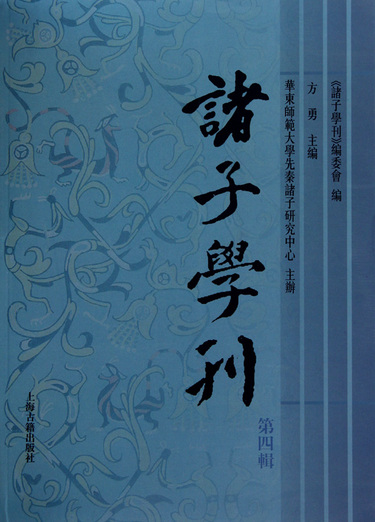 《諸子學刊》編委會 編
方勇 主编
華東師範大學先秦諸子研究中心 主辦
諸子學刊
第四輯
上海古籍出版社